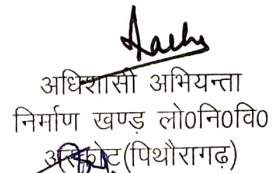 अधिशासी अभियन्ता
निर्माण खण्ड़ लो0नि0वि0
अस्कोट(पिथौरागढ़)